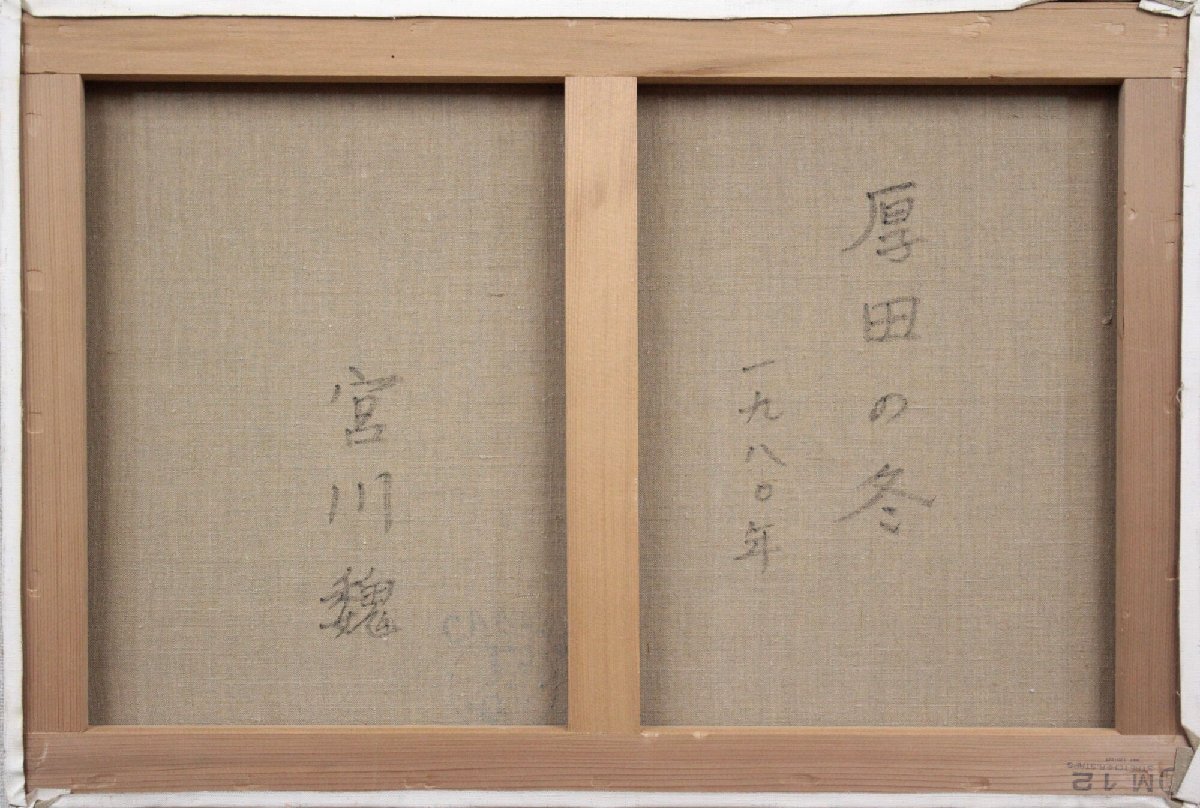 厚田の冬
一九八〇年
宮川魏
M 12
STRETCHER STAPS